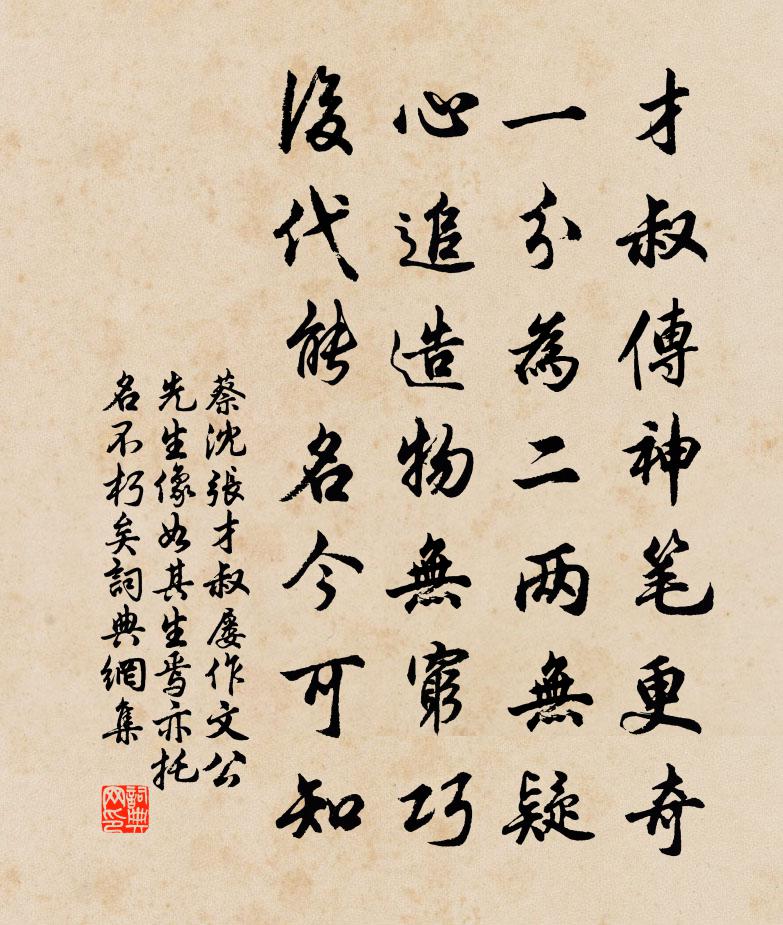 才叔傳神笔更奇
一分為二两無疑
心追造物無窮巧
後代能名今可知
蔡沈張才叔屡作文公
先生像如其生焉亦托
名不朽矣詞典網集
詞典网印